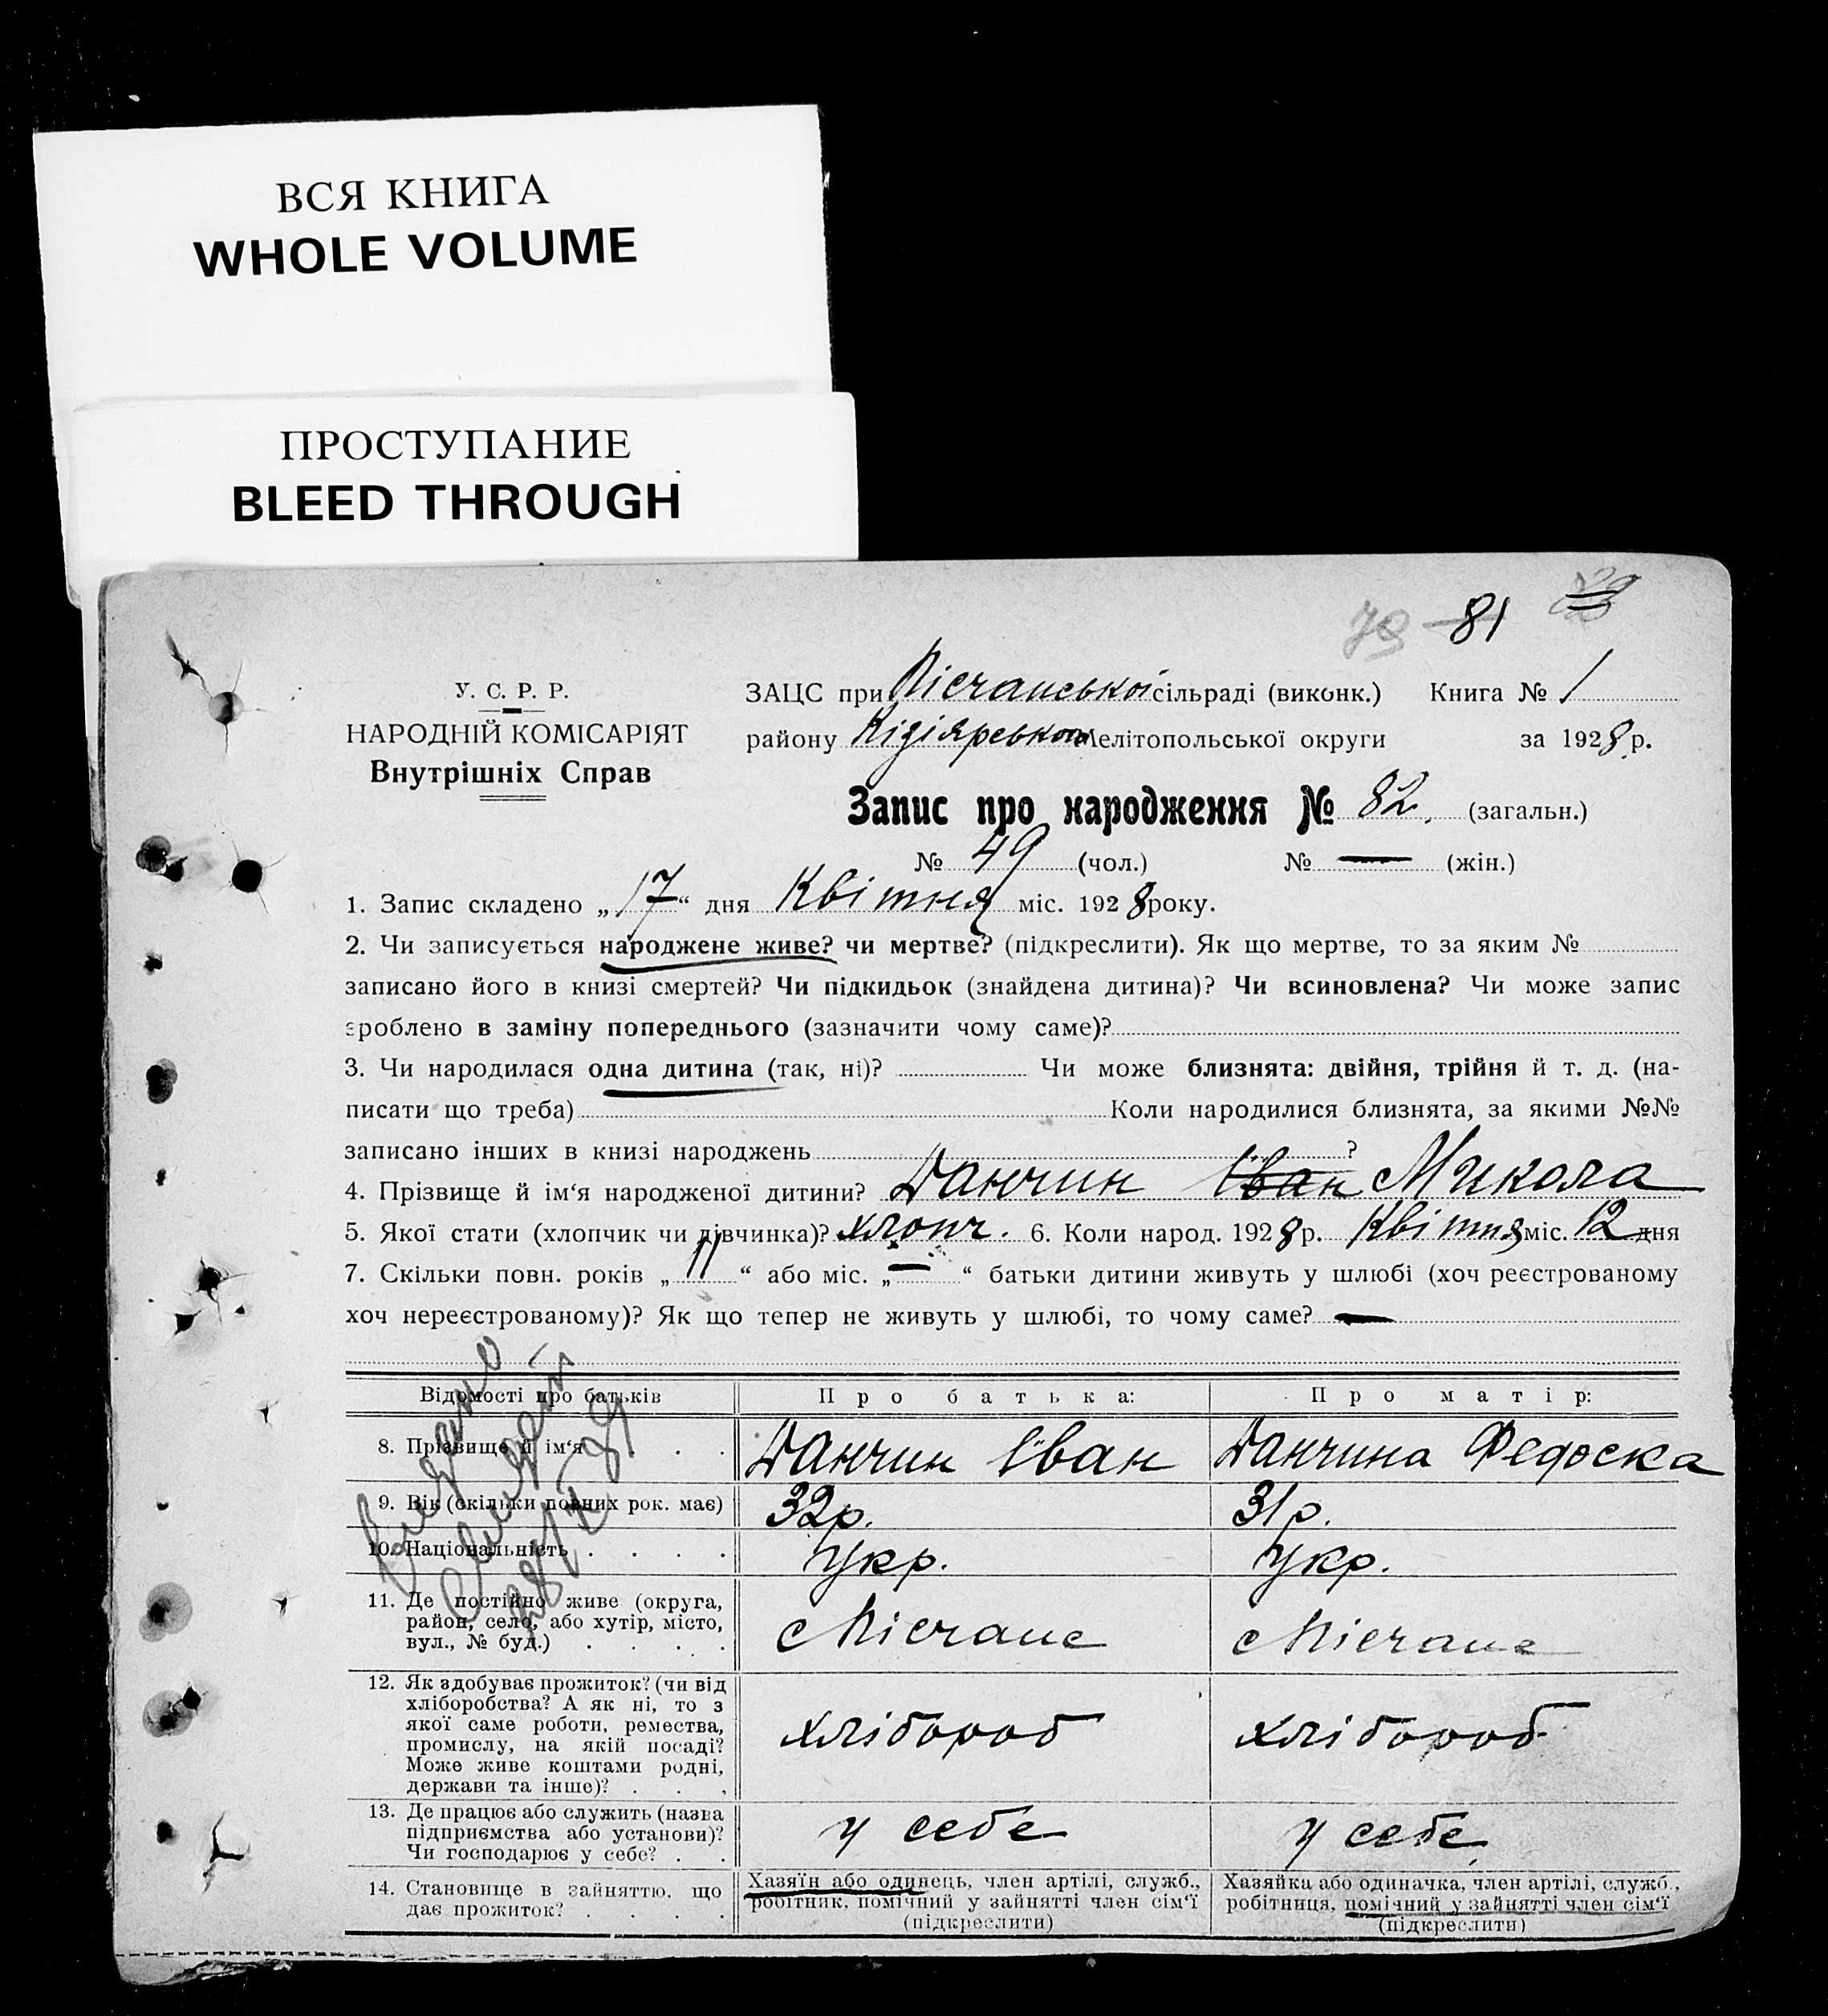 ВСЯ КНИГА
WHOLE VOLUME
ПРОСТУПАНИЕ
BLEED THROUGH
81
У. С. Р. Р.
НАРОДНІЙ КОМІСАРІЯТ
Внутрішніх Справ
ЗАЦС при Пісчанської сільраді (виконк.) Книга № 1
району Кізіярського Мелітопольської округи за 1928 р.
Запис про народження № 82. (загальн.)
№ 49 (чол.) № — (жін.)
1. Запис складено „17“ дня Квітня міс. 1928 року.
2. Чи записується народжене живе? чи мертве? (підкреслити). Як що мертве, то за яким №
записано його в книзі смертей? Чи підкидьок (знайдена дитина)? Чи всиновлена? Чи може запис
зроблено в заміну попереднього (зазначити чому саме)?
3. Чи народилася одна дитина (так, ні)? Чи може близнята: двійня, трійня й т. д. (на-
писати що треба) Коли народилися близнята, за якими №№
записано інших в книзі народжень ?
4. Прізвище й ім‘я народженої дитини? Данчин Іван Микола
5. Якої стати (хлопчик чи дівчинка)? хлопч. 6. Коли народ. 1928 р. Квітня міс. 12 дня
7. Скільки повн. років „11“ або міс. „—“ батьки дитини живуть у шлюбі (хоч реєстрованому
хоч нереєстрованому)? Як що тепер не живуть у шлюбі, то чому саме? —
Відомості про батьків Про батька: Про матір:
8. Прізвище й ім‘я . . . Данчин Іван Данчина Федоска
9. Вік (скільки повних рок. має) 32р. 31р.
10. Національність . . . . Укр. Укр.
11. Де постійно живе (округа,
район, село, або хутір, місто,
вул., № буд.) . . . .
с Пісчане с Пісчане
12. Як здобуває прожиток? (чи від
хліборобства? А як ні, то з
якої саме роботи, ремества,
промислу, на якій посаді?
Може живе коштами родні,
держави та інше)? . . .
хлібороб хлібороб
13. Де працює або служить (назва
підприємства або установи)?
Чи господарює у себе? . .
у себе у себе
14. Становище в зайняттю, що
дає прожиток? . . . .
Хазяїн або одинець, член артілі, служб.,
робітник, помічний у зайнятті член сім‘ї
(підкреслити)
Хазяйка або одиначка, член артілі, служб.,
робітниця, помічний у зайнятті член сім‘ї
(підкреслити)